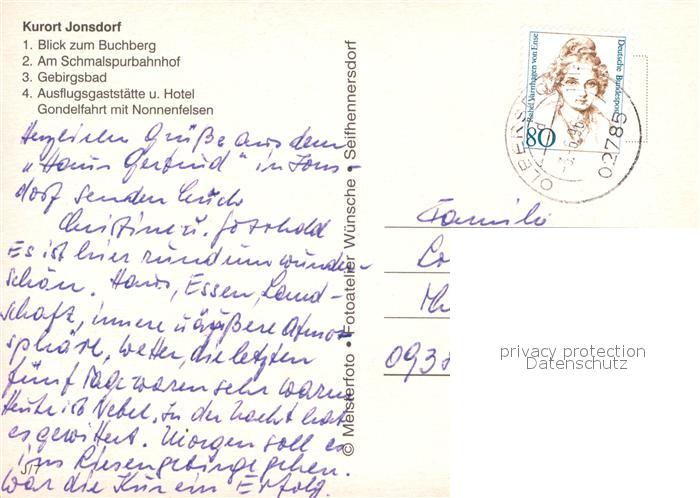 Kurort Jonsdorf
1. Blick zum Buchberg
2. Am Schmalspurbahnhof
3. Gebirgsbad
4. Ausflugsgaststätte u. Hotel
Gondelfahrt mit Nonnenfelsen
Herzlichen Grüße aus dem
„Haus Gertrud" in Jons-
dorf senden Euch
Christine u. Gotthold
Es ist hier rundum wunder-
schön. Haus, Essen, Land-
schaft, innere u. äußere Atmo-
sphäre, Wetter, die letzten
fünf Tage waren sehr warm
Heute ist Nebel. In der Nacht hat
es gewittert. Morgen soll es
ins Riesengebirge gehen.
War die Kur ein Erfolg.
© Meisterfoto • Fotoatelier Wünsche • Seifhennersdorf
Rahel Varnhagen von Ense
Deutsche Bundespost
80
OLBERS
02785
Familie
0938
privacy protection
Datenschutz